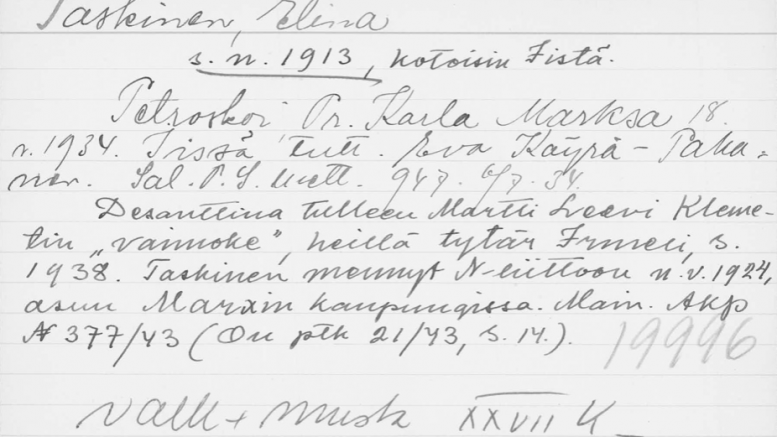 Taskinen, Elina
s. n. 1913, kotoisin Iistä.
Petroskoi Pr. Karla Marksa 18.
v. 1934. Iissä tutt. Eva Käyrä - Paka-
nen. Sal. P. S. 947. 6/7. 34.
Desanttina tulleen Martti Leevi Kleme-
tin „vaimoke”, heillä tytär Irmeli, s.
1938. Taskinen mennyt N-liittoon n. v. 1924,
asuu Marxin kaupungissa. Main. Akp
№ 377/43 (Ou ptk 21/43, s. 14.).
19996
valk + musk XXVII K